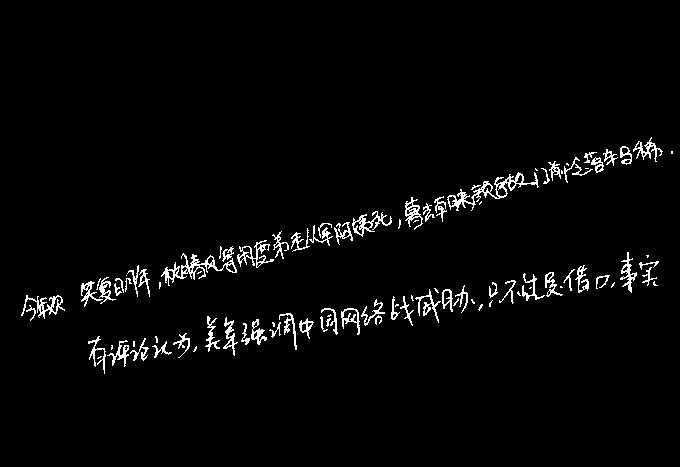 今年欢笑复明年,秋月春风等闲度弟走从军阿姨死,暮去朝来颜色故门前冷落车马稀.
有评论认为,美军强调中国网络战威胁,只不过是借口,事实